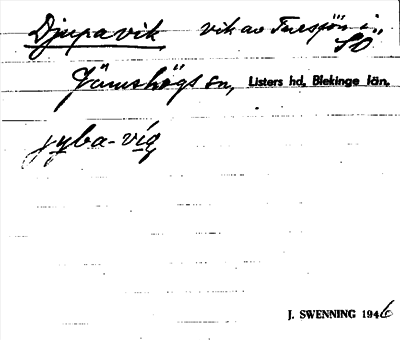 Djupavik vik av Tuesjön i SO
Jämshögs sn, Listers hd, Blekinge län.
jyba-vig
J. SWENNING 1946